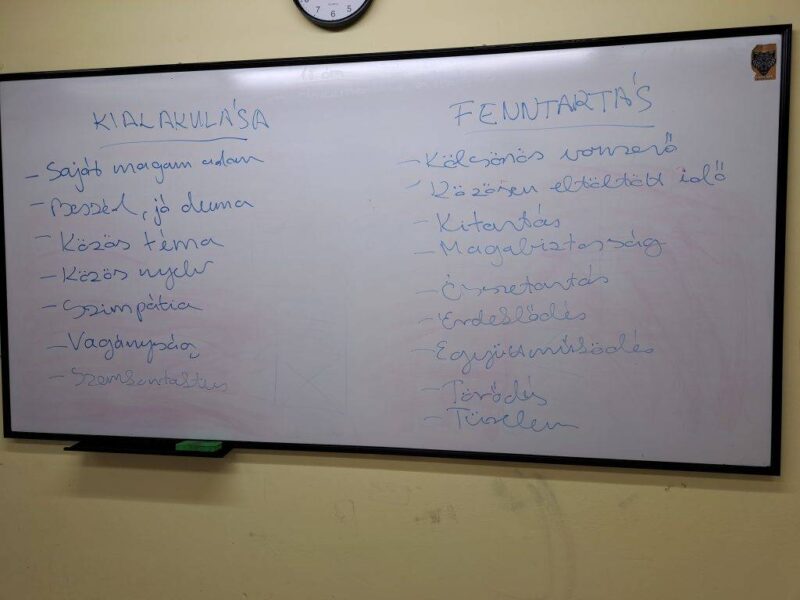 KIALAKULÁSA
- Saját magam adom
- Beszéd, jó duma
- Közös téma
- Közös nyelv
- Szimpátia
- Vagányság
- Szemkontaktus
FENNTARTÁS
- Kölcsönös vonzerő
- Közösen eltöltött idő
- Kitartás
- Magabiztosság
- Összetartás
- Érdeklődés
- Együttműködés
- Törődés
- Türelem
7 6 5